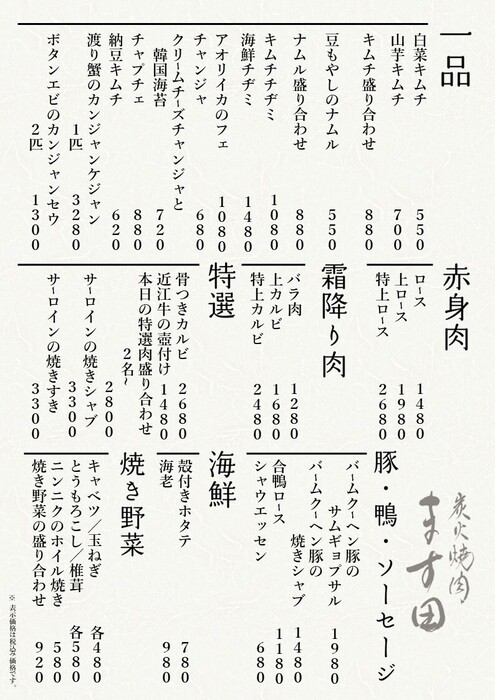 一品
白菜キムチ 550
山芋キムチ 700
キムチ盛り合わせ 880
豆もやしのナムル 550
ナムル盛り合わせ 880
キムチチヂミ 1080
海鮮チヂミ 1480
アオリイカのフェ 1080
チャンジャ 680
クリームチーズチャンジャと
韓国海苔 720
チャプチェ 880
納豆キムチ 620
渡り蟹のカンジャンケジャン
1匹 3280
ボタンエビのカンジャンセウ
2匹 1300
赤身肉
ロース 1480
上ロース 1980
特上ロース 2680
霜降り肉
バラ肉 1280
上カルビ 1680
特上カルビ 2480
特選
骨つきカルビ 2680
近江牛の壺付け 1480
本日の特選肉盛り合わせ
2名~ 2800
サーロインの焼きシャブ 3300
サーロインの焼きすき 3300
豚・鴨・ソーセージ
バームクーヘン豚の
サムギョプサル 1980
バームクーヘン豚の
焼きシャブ 1480
合鴨ロース 1180
シャウエッセン 680
海鮮
殻付きホタテ 780
海老 980
焼き野菜
キャベツ/玉ねぎ 各480
とうもろこし/椎茸 各580
ニンニクのホイル焼き 580
焼き野菜の盛り合わせ 920
炭火焼肉
ます田
※ 表示価格は税込み価格です。